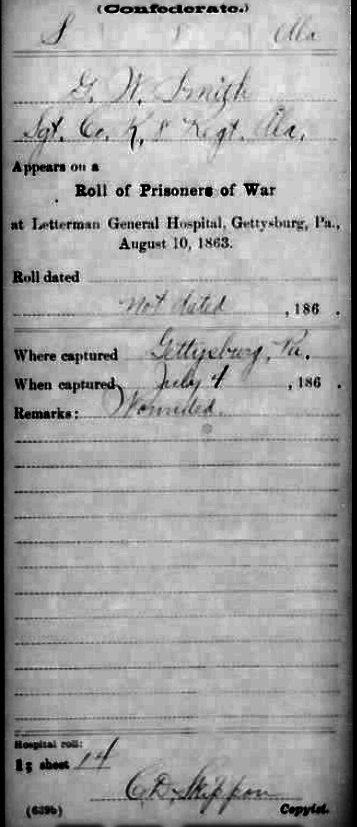 (Confederate.)
S 8 Ala
G. W. Smith
Sgt. Co. K, 8 Regt. Ala.
Appears on a
Roll of Prisoners of War
at Letterman General Hospital, Gettysburg, Pa.,
August 10, 1863.
Roll dated
Not dated , 186 .
Where captured Gettysburg, Pa.
When captured July 4 , 186 .
Remarks: Wounded.
Hospital roll:
sheet 14
C. D. Skippon
(639b) Copyist.